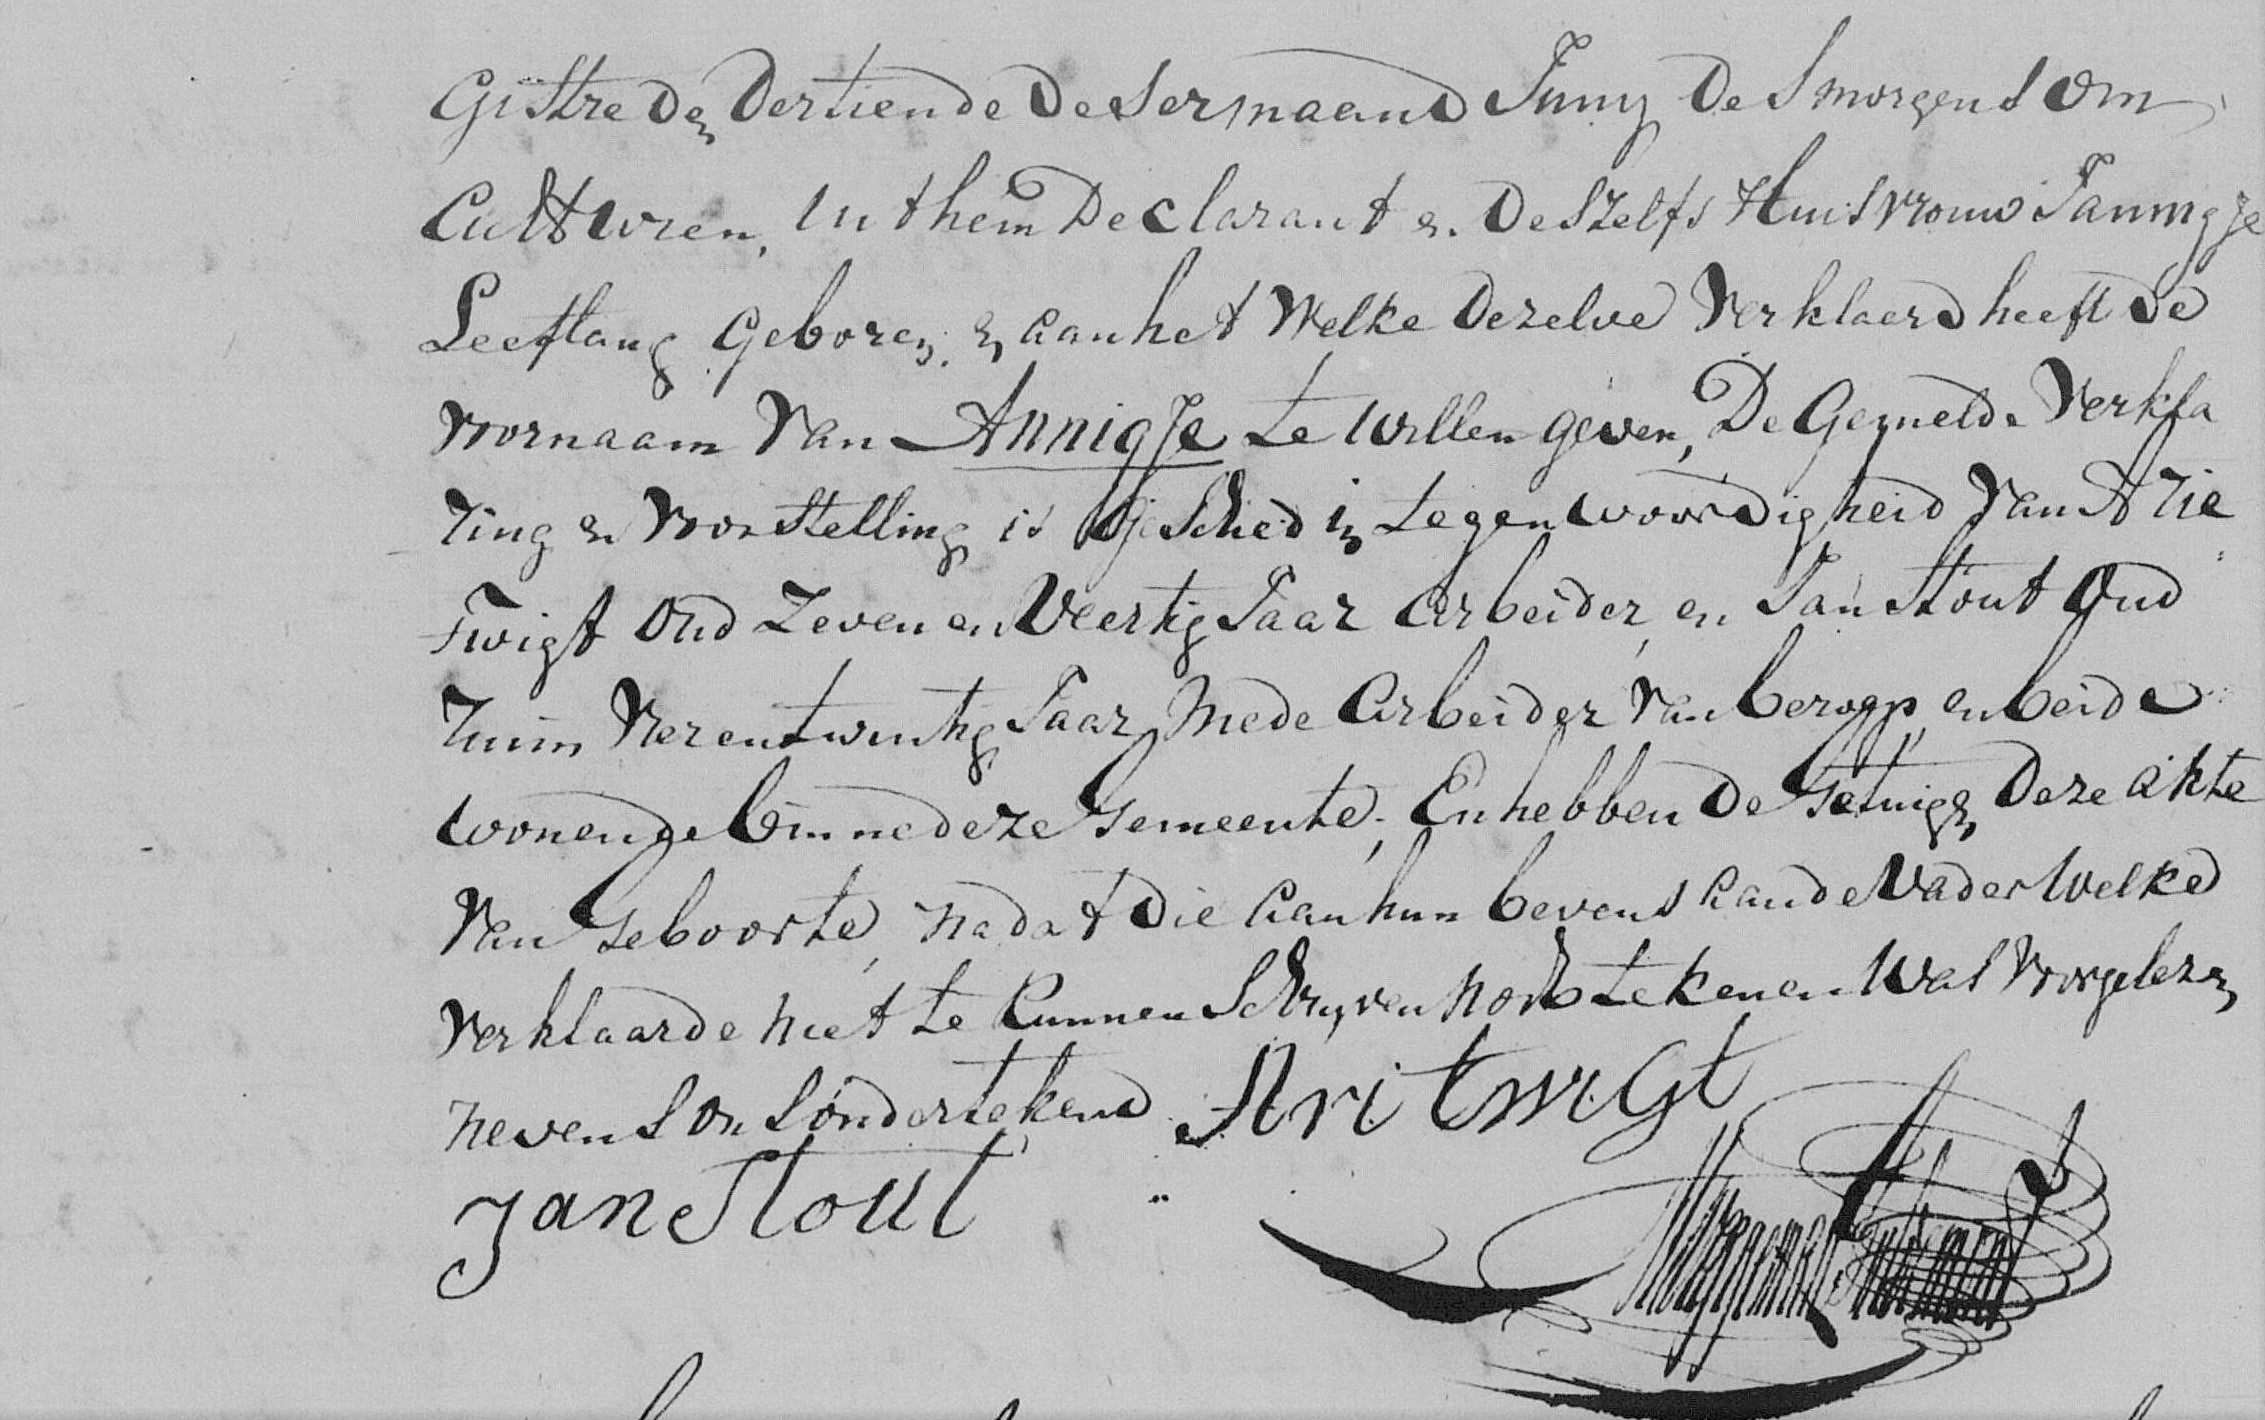 Gistre den dertiende deser maand Juny des morgens om
acht uren, uit hem Declarant en deszelfs Huisvrouw Jannigje
Leeflang Geboren, en aan het welke dezelve verklaard heeft de
voornaam van Annigje te willen geven, De Gemelde verkla
ring en voorstelling is Geschied in tegenwoordigheid van Arie
Twigt oud Zeven en Veertig Jaar Arbeider, en Jan Stout Oud
ruim vier en twintig Jaar, mede Arbeider van beroep, en beide
wonende binne deze Gemeente, En hebben de Getuigen deze akte
van Geboorte, nadat die aan hun bevens aan de Vader welke
verklaarde niet te kunnen Schryven noch tekenen was voorgelezen
nevens ons ondertekend Ari twigt
Jan Stout